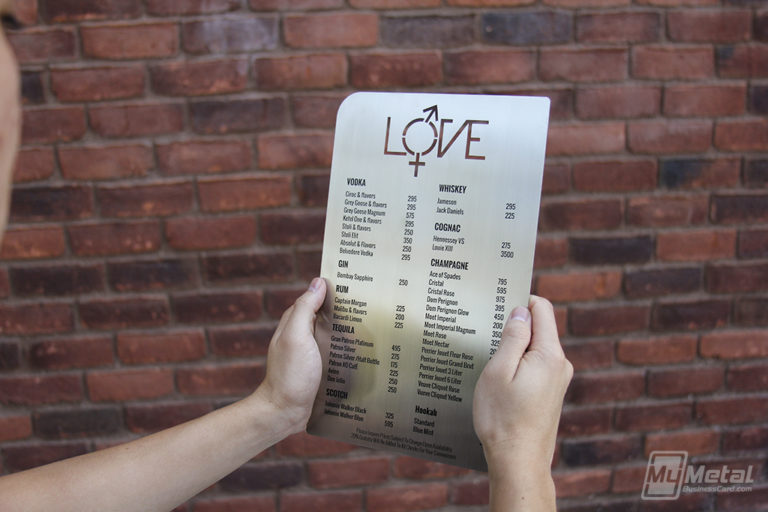 LOVE
VODKA
Ciroc & flavors 295
Grey Goose & flavors 295
Grey Goose Magnum 575
Ketel One & flavors 295
Stoli & flavors 250
Stoli Elit 350
Absolut & flavors 250
Belvedere Vodka 295
GIN
Bombay Sapphire 250
RUM
Captain Morgan 225
Malibu & flavors 200
Bacardi Limon 225
TEQUILA
Gran Patron Platinum 495
Patron Silver 275
Patron Silver /Half Bottle 175
Patron XO Café 225
Avion 250
Don Julio 250
SCOTCH
Johnnie Walker Black 325
Johnnie Walker Blue 595
WHISKEY
Jameson 295
Jack Daniels 225
COGNAC
Hennessey VS 275
Louie XIII 3500
CHAMPAGNE
Ace of Spades 795
Cristal 595
Cristal Rose 975
Dom Perignon 395
Dom Perignon Glow 450
Moet Imperial 200
Moet Imperial Magnum
Moet Rose
Moet Nectar
Perrier Jouet Fleur Rose
Perrier Jouet Grand Brut
Perrier Jouet 3 Liter
Perrier Jouet 6 Liter
Veuve Cliquot Rose
Veuve Cliquot Yellow
Hookah
Standard
Blue Mist
20% Gratuity Will Be Added To All Checks For Your Convenience
MyMetal
BusinessCard.com